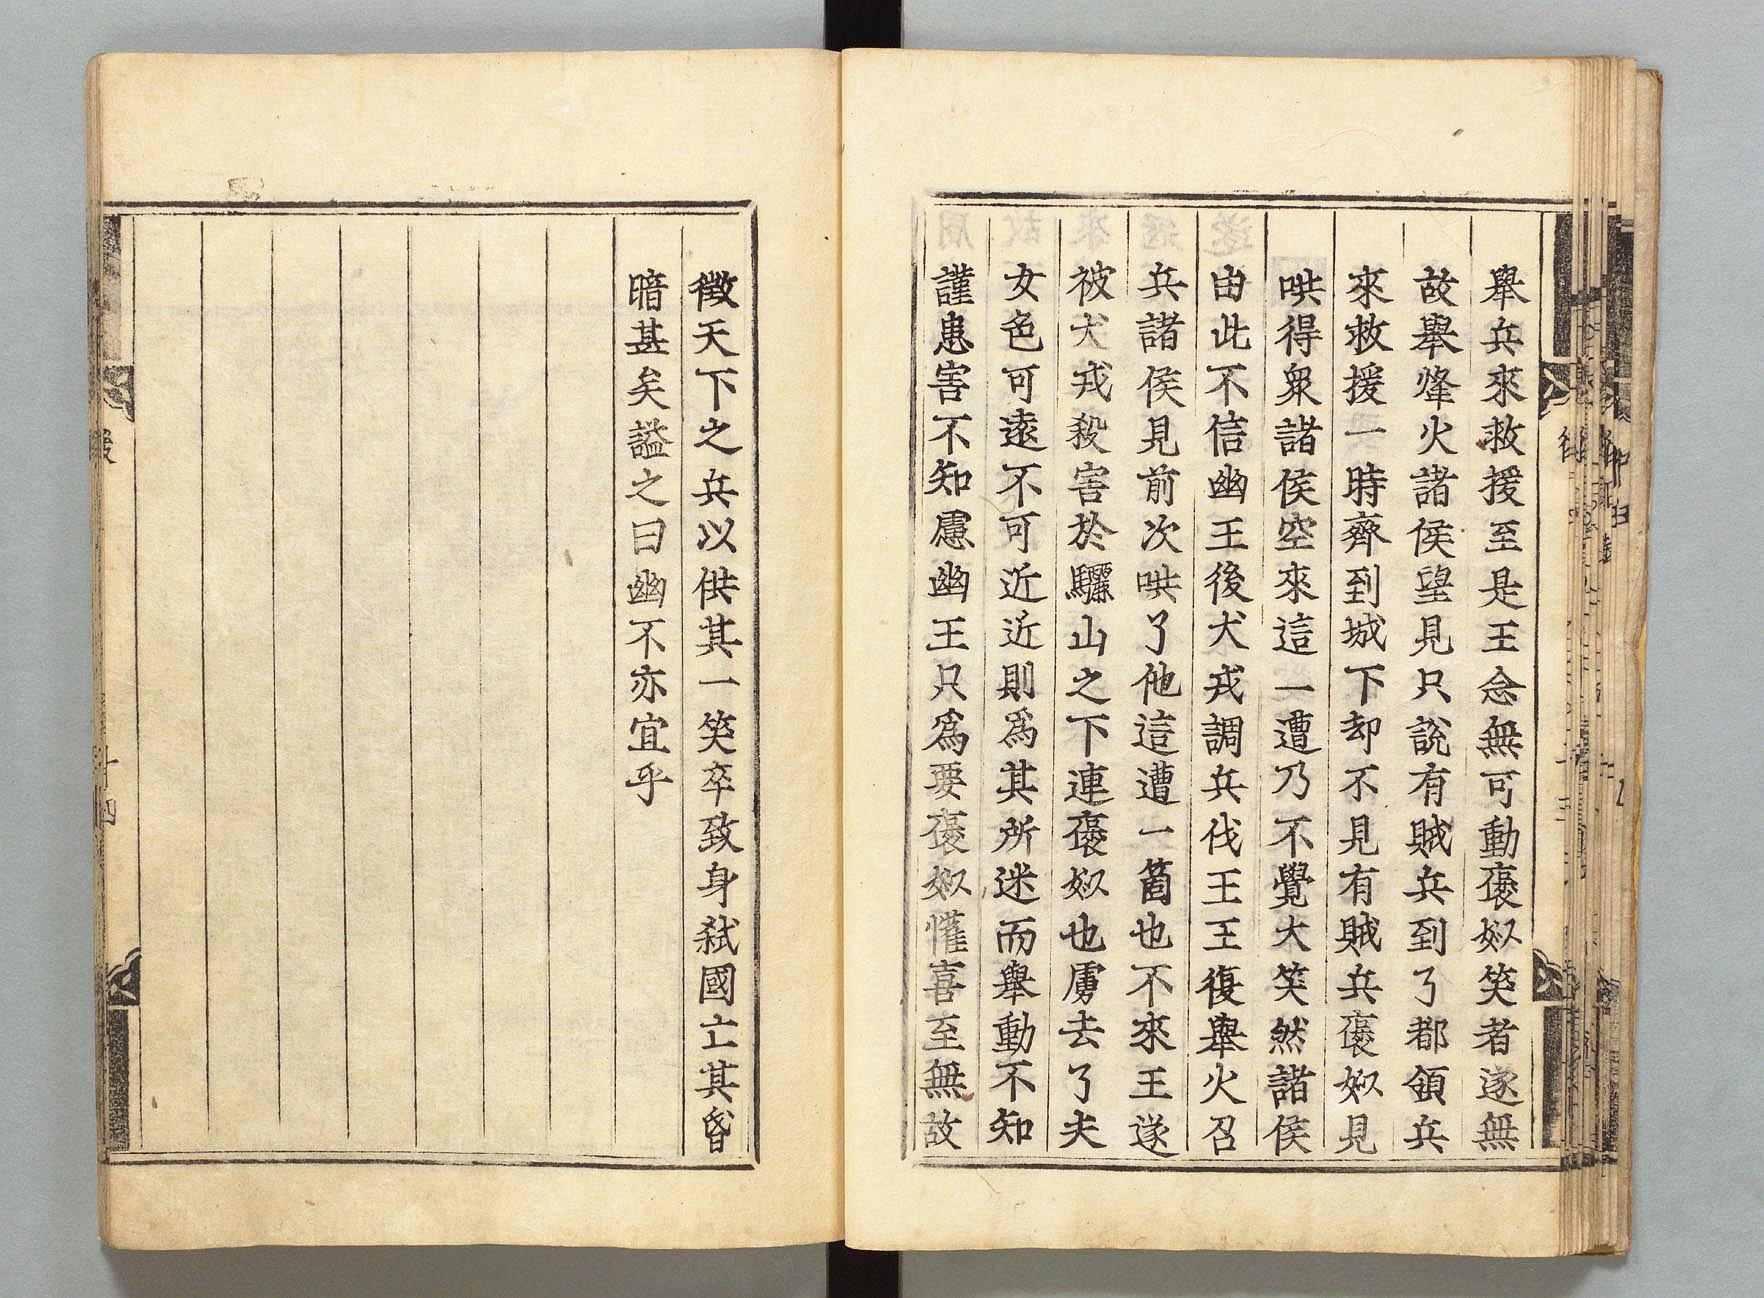 舉兵來救援至是王念無可動褒姒笑者遂無
故舉烽火諸侯望見只說有賊兵到了都領兵
來救援一時齊到城下却不見有賊兵褒姒見
哄得衆諸侯空來這一遭乃不覺大笑然諸侯
由此不信幽王後犬戎調兵伐王王復舉火召
兵諸侯見前次哄了他這遭一箇也不來王遂
被犬戎殺害於驪山之下連褒姒也虜去了夫
女色可遠不可近近則爲其所迷而舉動不知
謹患害不知慮幽王只爲要褒姒懽喜至無故
徵天下之兵以供其一笑卒致身弑國亡其昏
暗甚矣謚之曰幽不亦宜乎
十四